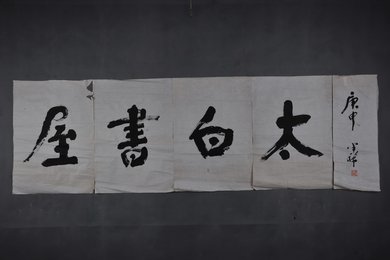 太白書屋
庚申